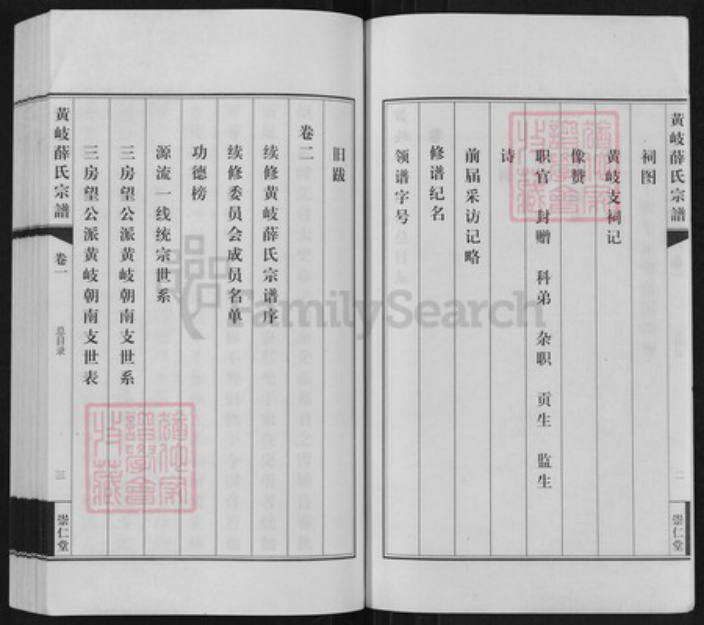 黄岐薛氏宗譜
二
崇仁堂
祠图
黄岐支祠记
像赞
职官 封赠 科弟 杂职 贡生 监生
诗
前届采访记略
修谱纪名
领谱字号
旧跋
卷二
续修黄岐薛氏宗谱序
续修委员会成员名单
功德榜
源流一线统宗世系
三房望公派黄岐朝南支世系
三房望公派黄岐朝南支世表
黄岐薛氏宗譜
卷一
总目录
三
崇仁堂
FamilySearch